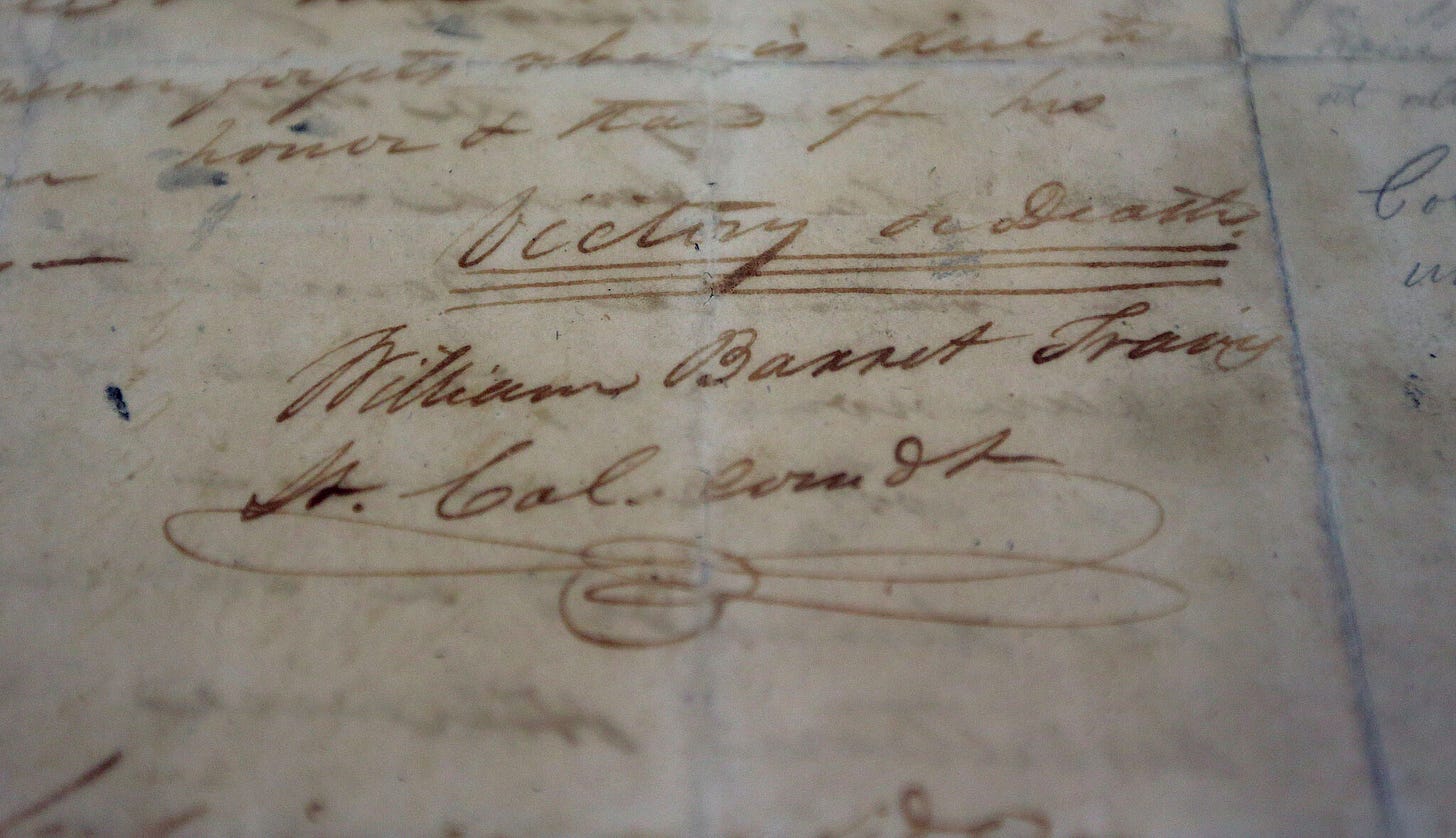 never forgets what is due to
honor & that of his
Victory or Death.
William Barret Travis
Lt. Col. comdt